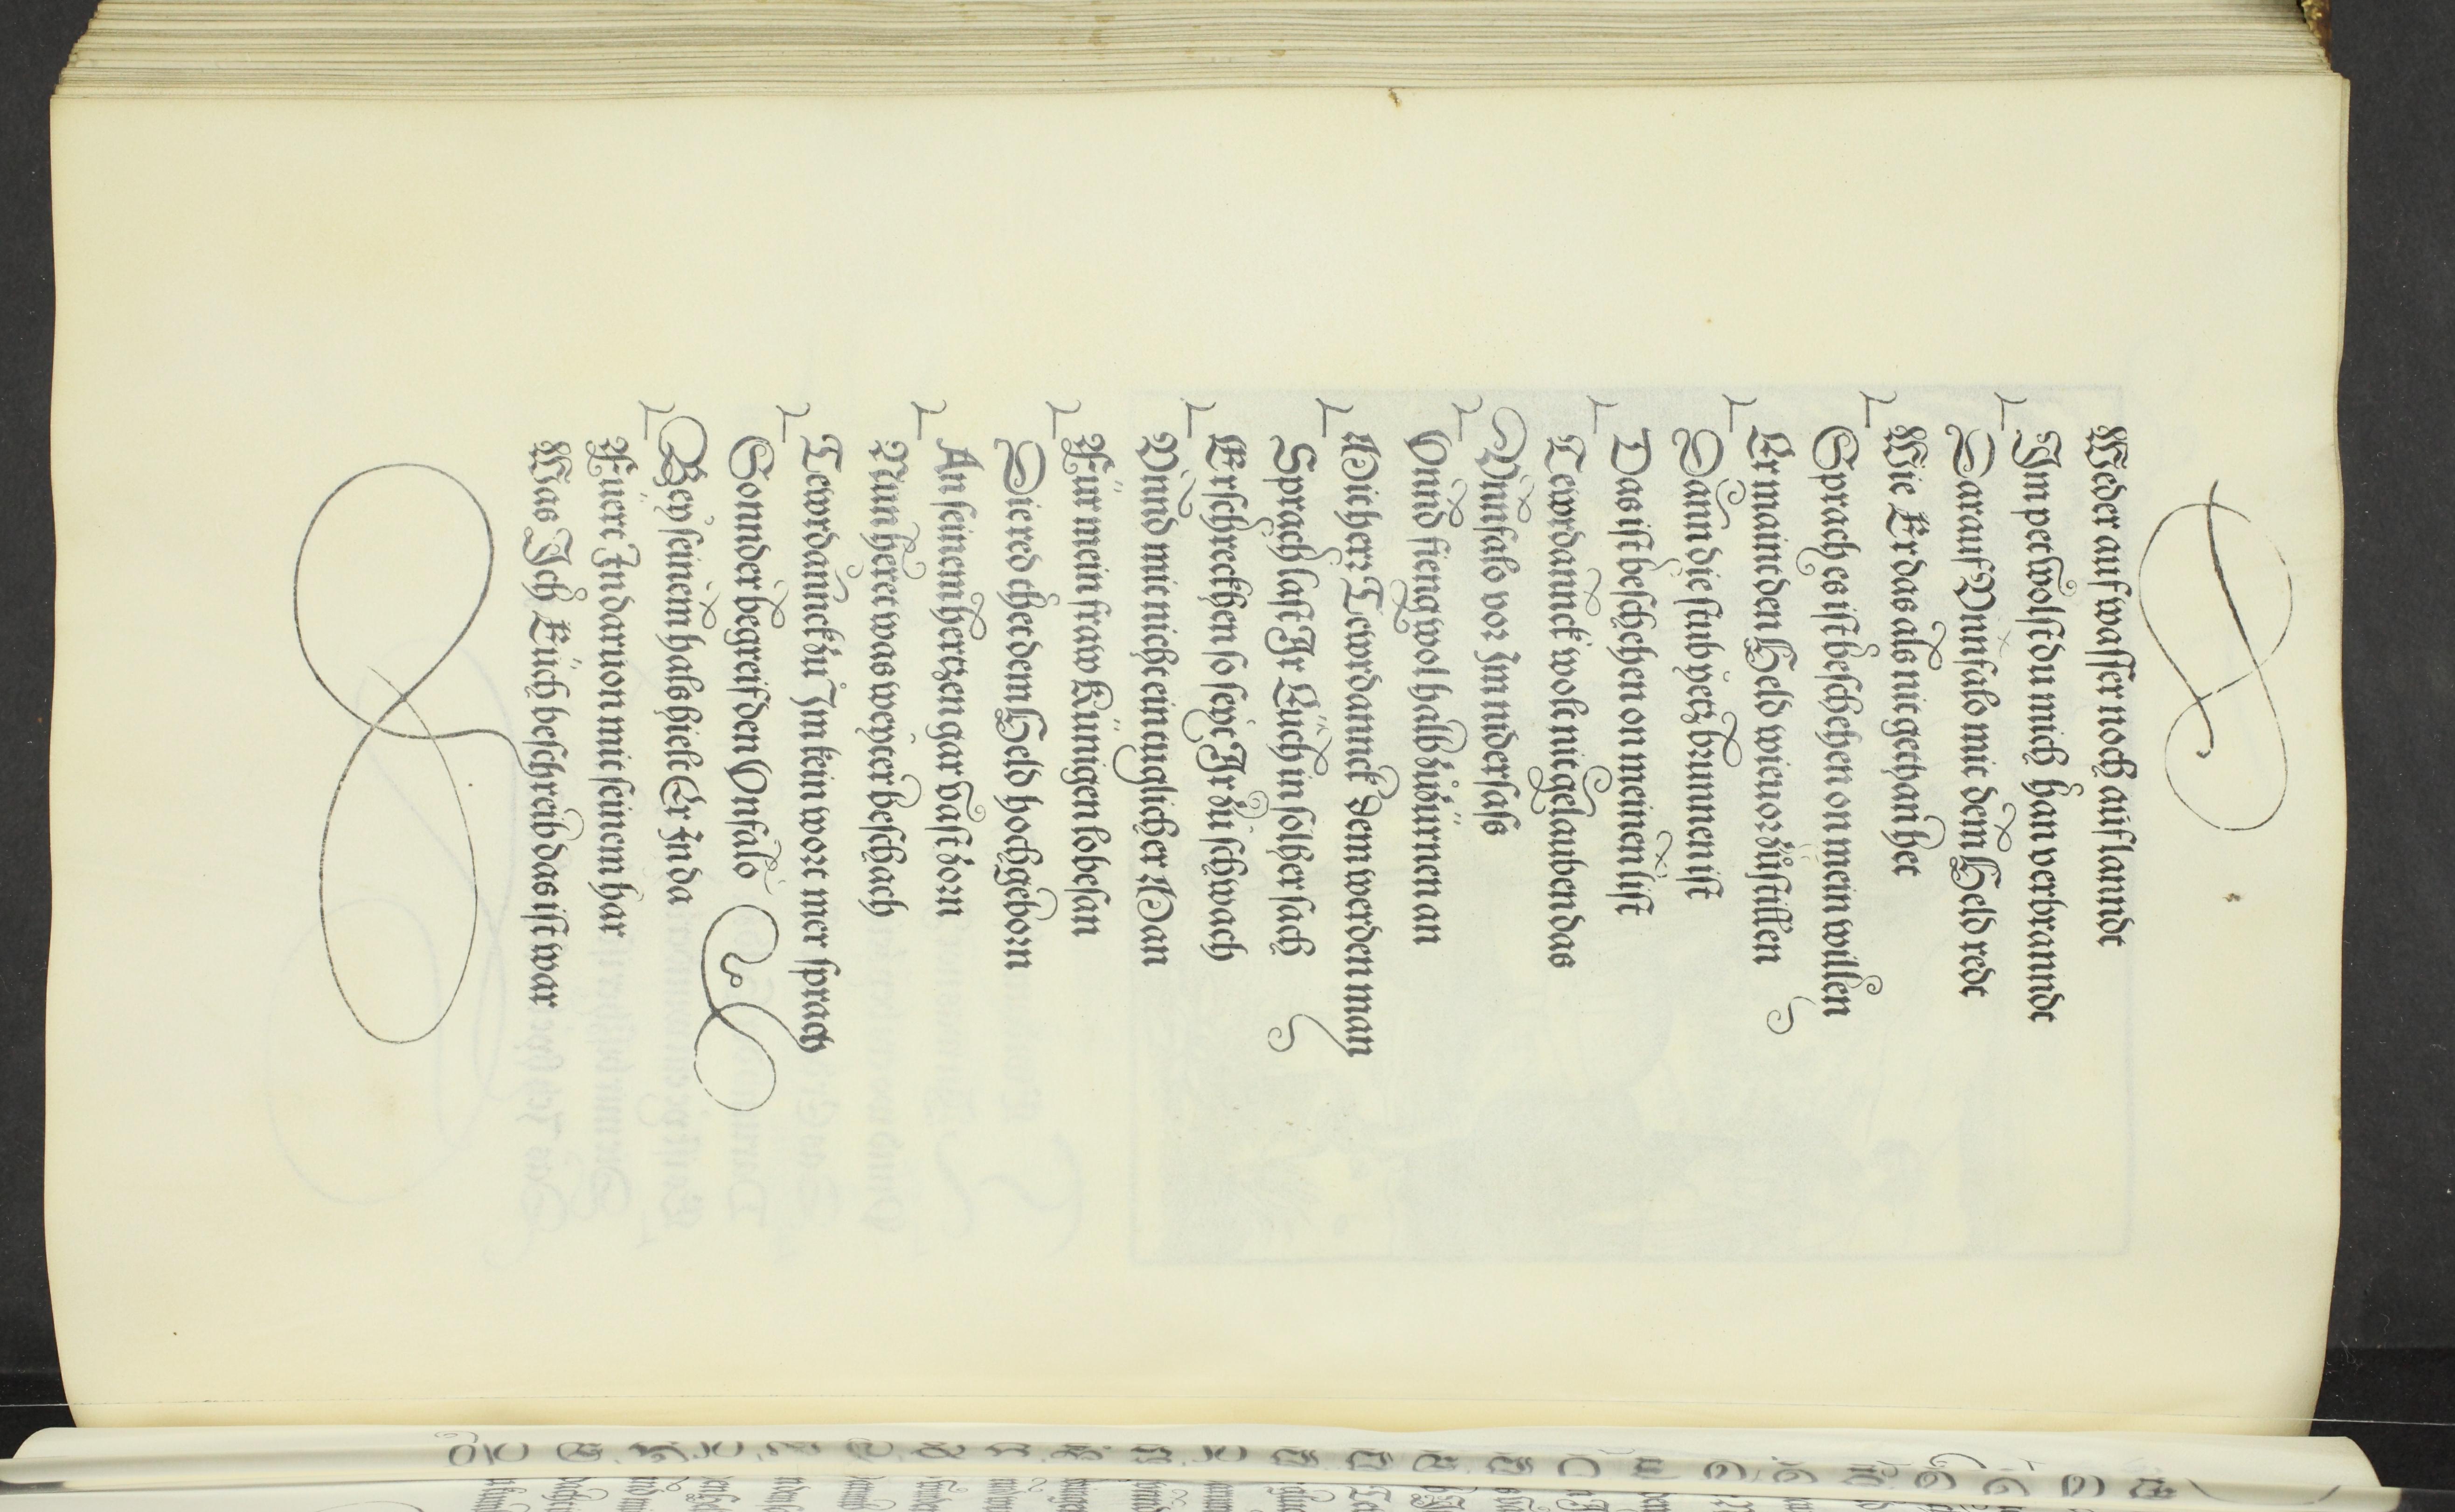 Weder auf wasser noch auf lanndt
Im pet wolst du mich han verbranndt
Darauf Vnnfalo mit dem Held redt
Wie Er das als nit gethan het
Sprach es ist beschehen on mein willen
Er maint den Held wie vor zůstillen
Dann die stub yetz brunnen ist
Das ist beschehen on meinen list
Tewrdannck wolt nit gelauben das
Vnnfalo vor Im nider sass
Vnnd fieng wol halb zůzürnen an
Mit herr Tewrdannck dem werden man
Sprach last Ir Eüch in solher sach
Erschreckhen so seyt Ir zů schwach
Vnnd mit nicht ein tuglicher Man
Für mein fraw Künigen lobesan
Die red thet dem Held hochgeborn
An seinem hertzen gar vast zorn
Nun höret was weyter beschach
Tewrdannck zů Im kein wort mer sprach
Sonnder begreif den Vnfalo
Bey seinem hals hielt Er In da
Füert In daruon mit seinem har
Was Ich Eüch beschreib das ist war